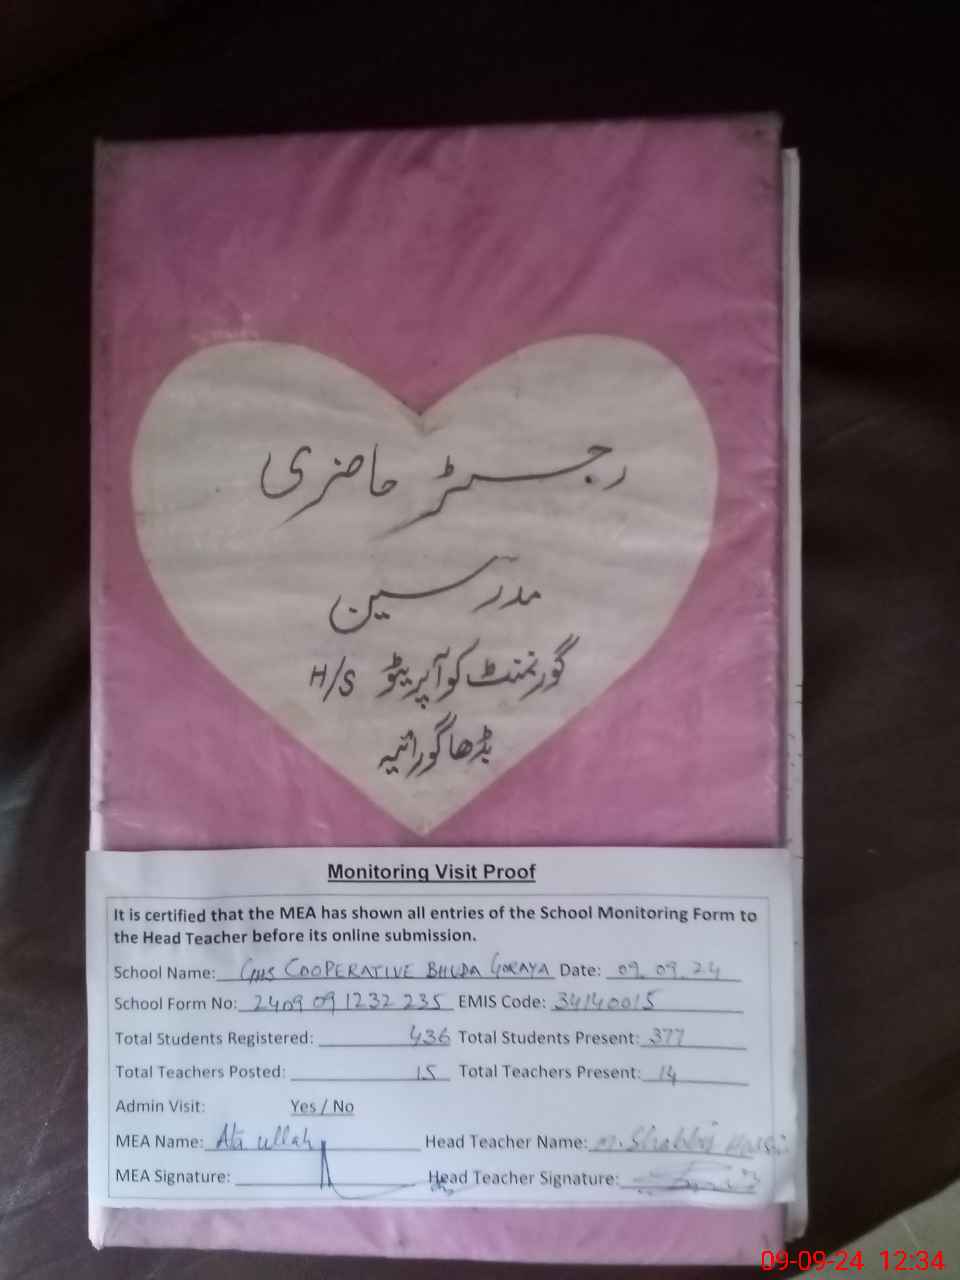 رجسٹر حاضری
مدرسین
گورنمنٹ کوآپریٹو H/S
بڈھا گورائیہ
Monitoring Visit Proof
It is certified that the MEA has shown all entries of the School Monitoring Form to
the Head Teacher before its online submission.
School Name: GHS COOPERATIVE BHUDA GORAYA Date: 09.09.24
School Form No: 240909 1232 235 EMIS Code: 34140015
Total Students Registered: 436 Total Students Present: 377
Total Teachers Posted: 15 Total Teachers Present: 14
Admin Visit: Yes / No
MEA Name: Ata ullah Head Teacher Name: M. Shabbir
MEA Signature: Head Teacher Signature:
09-09-24 12:34